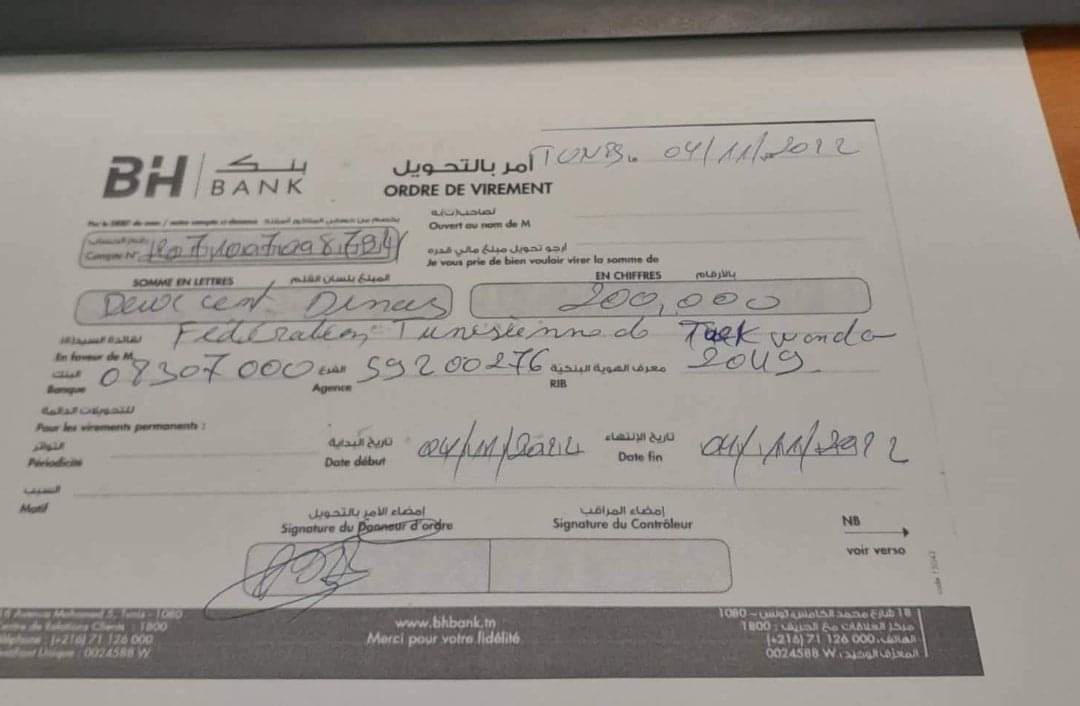 BH BANK بنك
أمر بالتحويل
ORDRE DE VIREMENT
TUNIS. 04/11/2022
لصاحب(ت)ه
Ouvert au nom de M
رقم الحساب
Compte N°
أرجو تحويل مبلغ مالي قدره
Je vous prie de bien vouloir virer la somme de
المبلغ بلسان القلم
SOMME EN LETTRES
بالأرقام
EN CHIFFRES
Deux cent Dinars
200,000
لفائدة السيد(ة)
En faveur de M. Fédération Tunisienne de Taekwondo
البنك
Banque 08307000
الفرع
Agence 59200276
معرف الهوية البنكية
RIB 2049
للتحويلات الدائمة
Pour les virements permanents :
التواتر
Périodicité
تاريخ البداية
Date début 04/11/2022
تاريخ الإنتهاء
Date fin 04/11/2022
السبب
Motif
إمضاء الآمر بالتحويل
Signature du Donneur d'ordre
إمضاء المراقب
Signature du Contrôleur
NB
voir verso
code 15043
Avenue Mohamed 5, Tunis - 1080
Centre de Relations Clients : 1800
Téléphone : (+216) 71 126 000
Identifiant Unique : 0024588 W
www.bhbank.tn
Merci pour votre fidélité
18 شارع محمد الخامس تونس – 1080
مركز العلاقات مع الحريف : 1800
الهاتف : 000 126 71 (216+)
المعرف الوحيد : 0024588 W